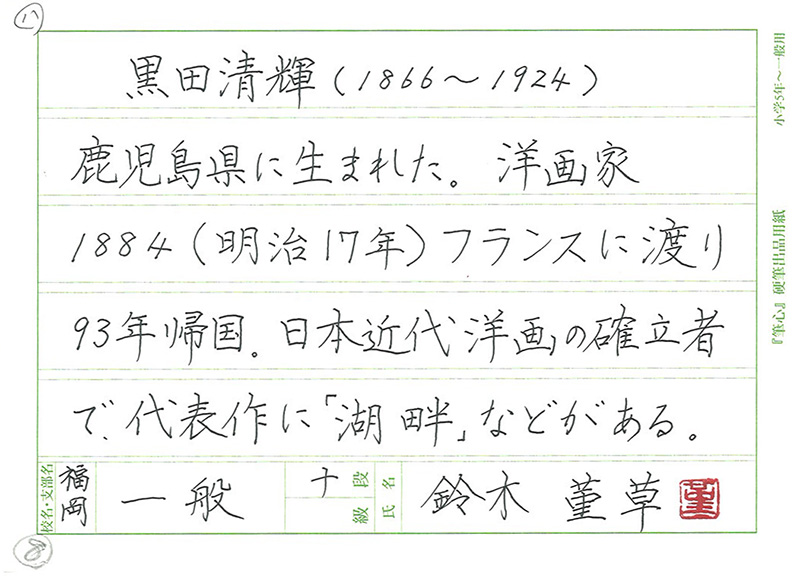 11
黒田清輝(1866〜1924)
鹿児島県に生まれた。洋画家
1884(明治17年)フランスに渡り
93年帰国。日本近代洋画の確立者
で、代表作に「湖畔」などがある。
校名・支部名 福岡 一般 十 段 級 氏名 鈴木 菫草 菫
8
小学5年〜一般用
『筆心』硬筆出品用紙